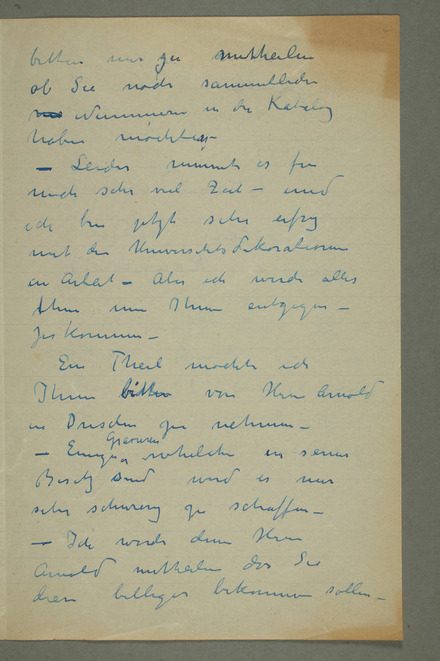 bitten mir zu mittheilen
ob Sie noch sammtliche
Nummern in die Katalog
haben möchten –
– Leider nimmt es für
mich sehr viel Zeit – und
ich bin jetzt sehr eifrig
mit den Universitets Dekorationen
an Arbeit – Aber ich werde alles
thun um Ihnen entgegen –
zu kommen –
Ein Theil möchte ich
Ihnen bitten von Herr Arnold
in Dresden zu nehmen –
– Einige Gravuren welche in seinem
Besitz sind wird es mir
sehr schwierig zu schaffen –
– Ich werde dem Herrn
Arnold mittheilen das Sie
diese billiger bekommen sollen –